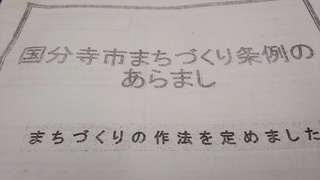 国分寺市まちづくり条例の
あらまし
まちづくりの作法を定めました